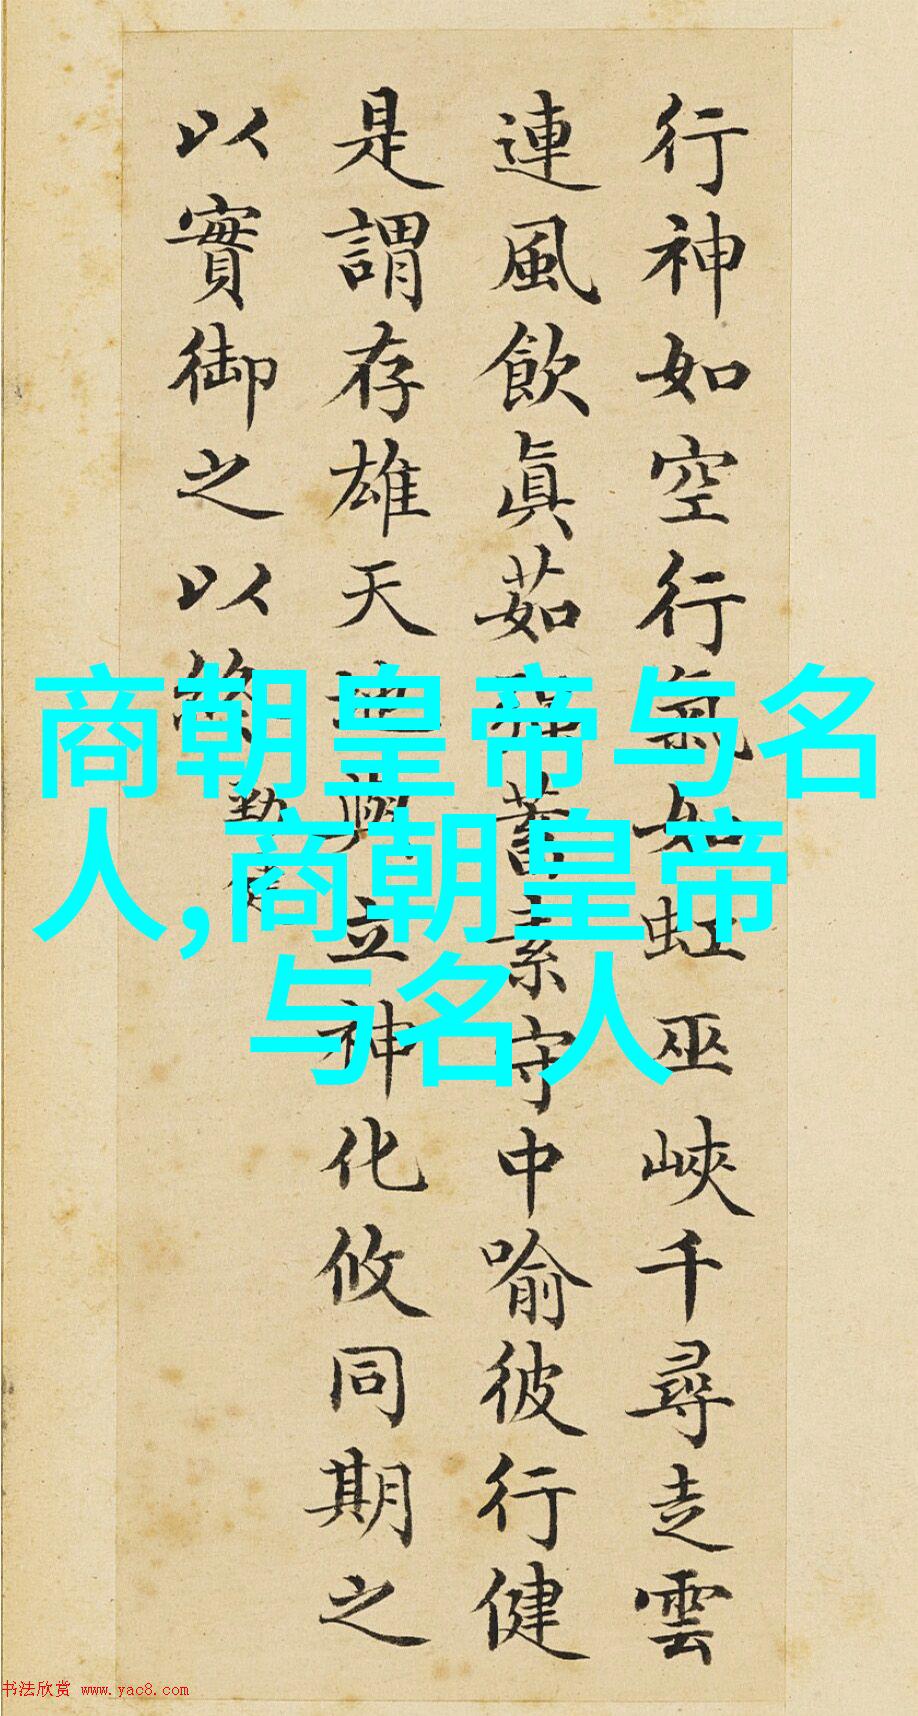 行神如空行氣如虹巫峽千尋走雲
連風飲眞茹強蓄素守中喻彼行健
是謂存雄天地與立神化攸同期之
以實御之以終
勁健
商朝皇帝与名
人,商朝皇帝
与名人
书法欣赏 www.yac8.com